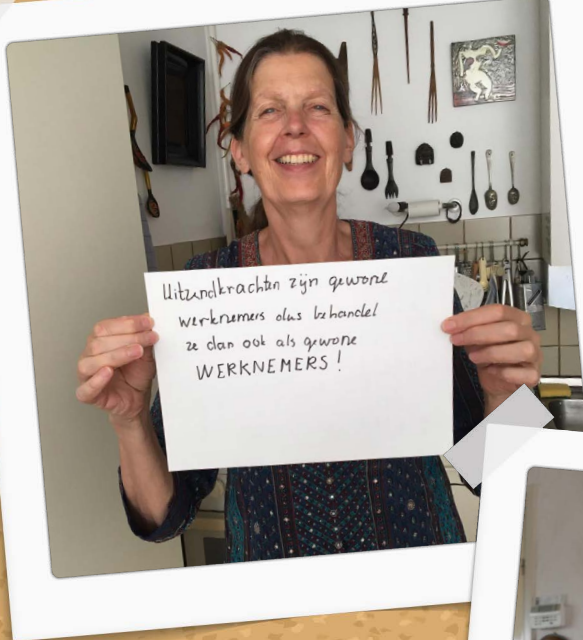 Uitzendkrachten zijn gewone
werknemers dus behandel
ze dan ook als gewone
WERKNEMERS!